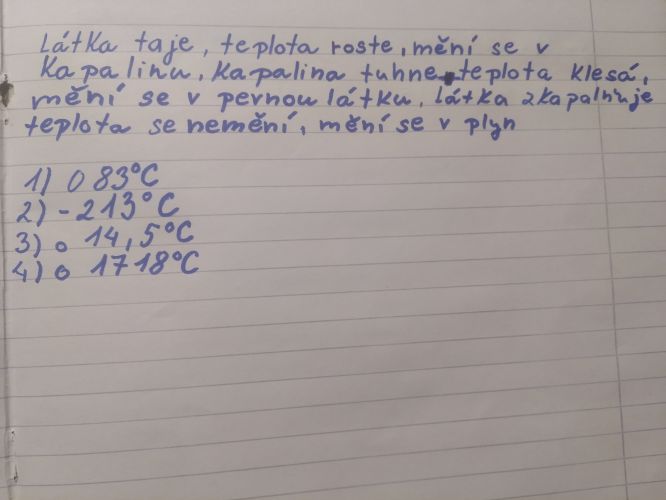 Látka taje, teplota roste, mění se v
kapalinu, kapalina tuhne teplota klesá,
mění se v pevnou látku, látka zkapalňuje
teplota se nemění, mění se v plyn
1) o 83°C
2) -213°C
3) o 14,5°C
4) o 1718°C